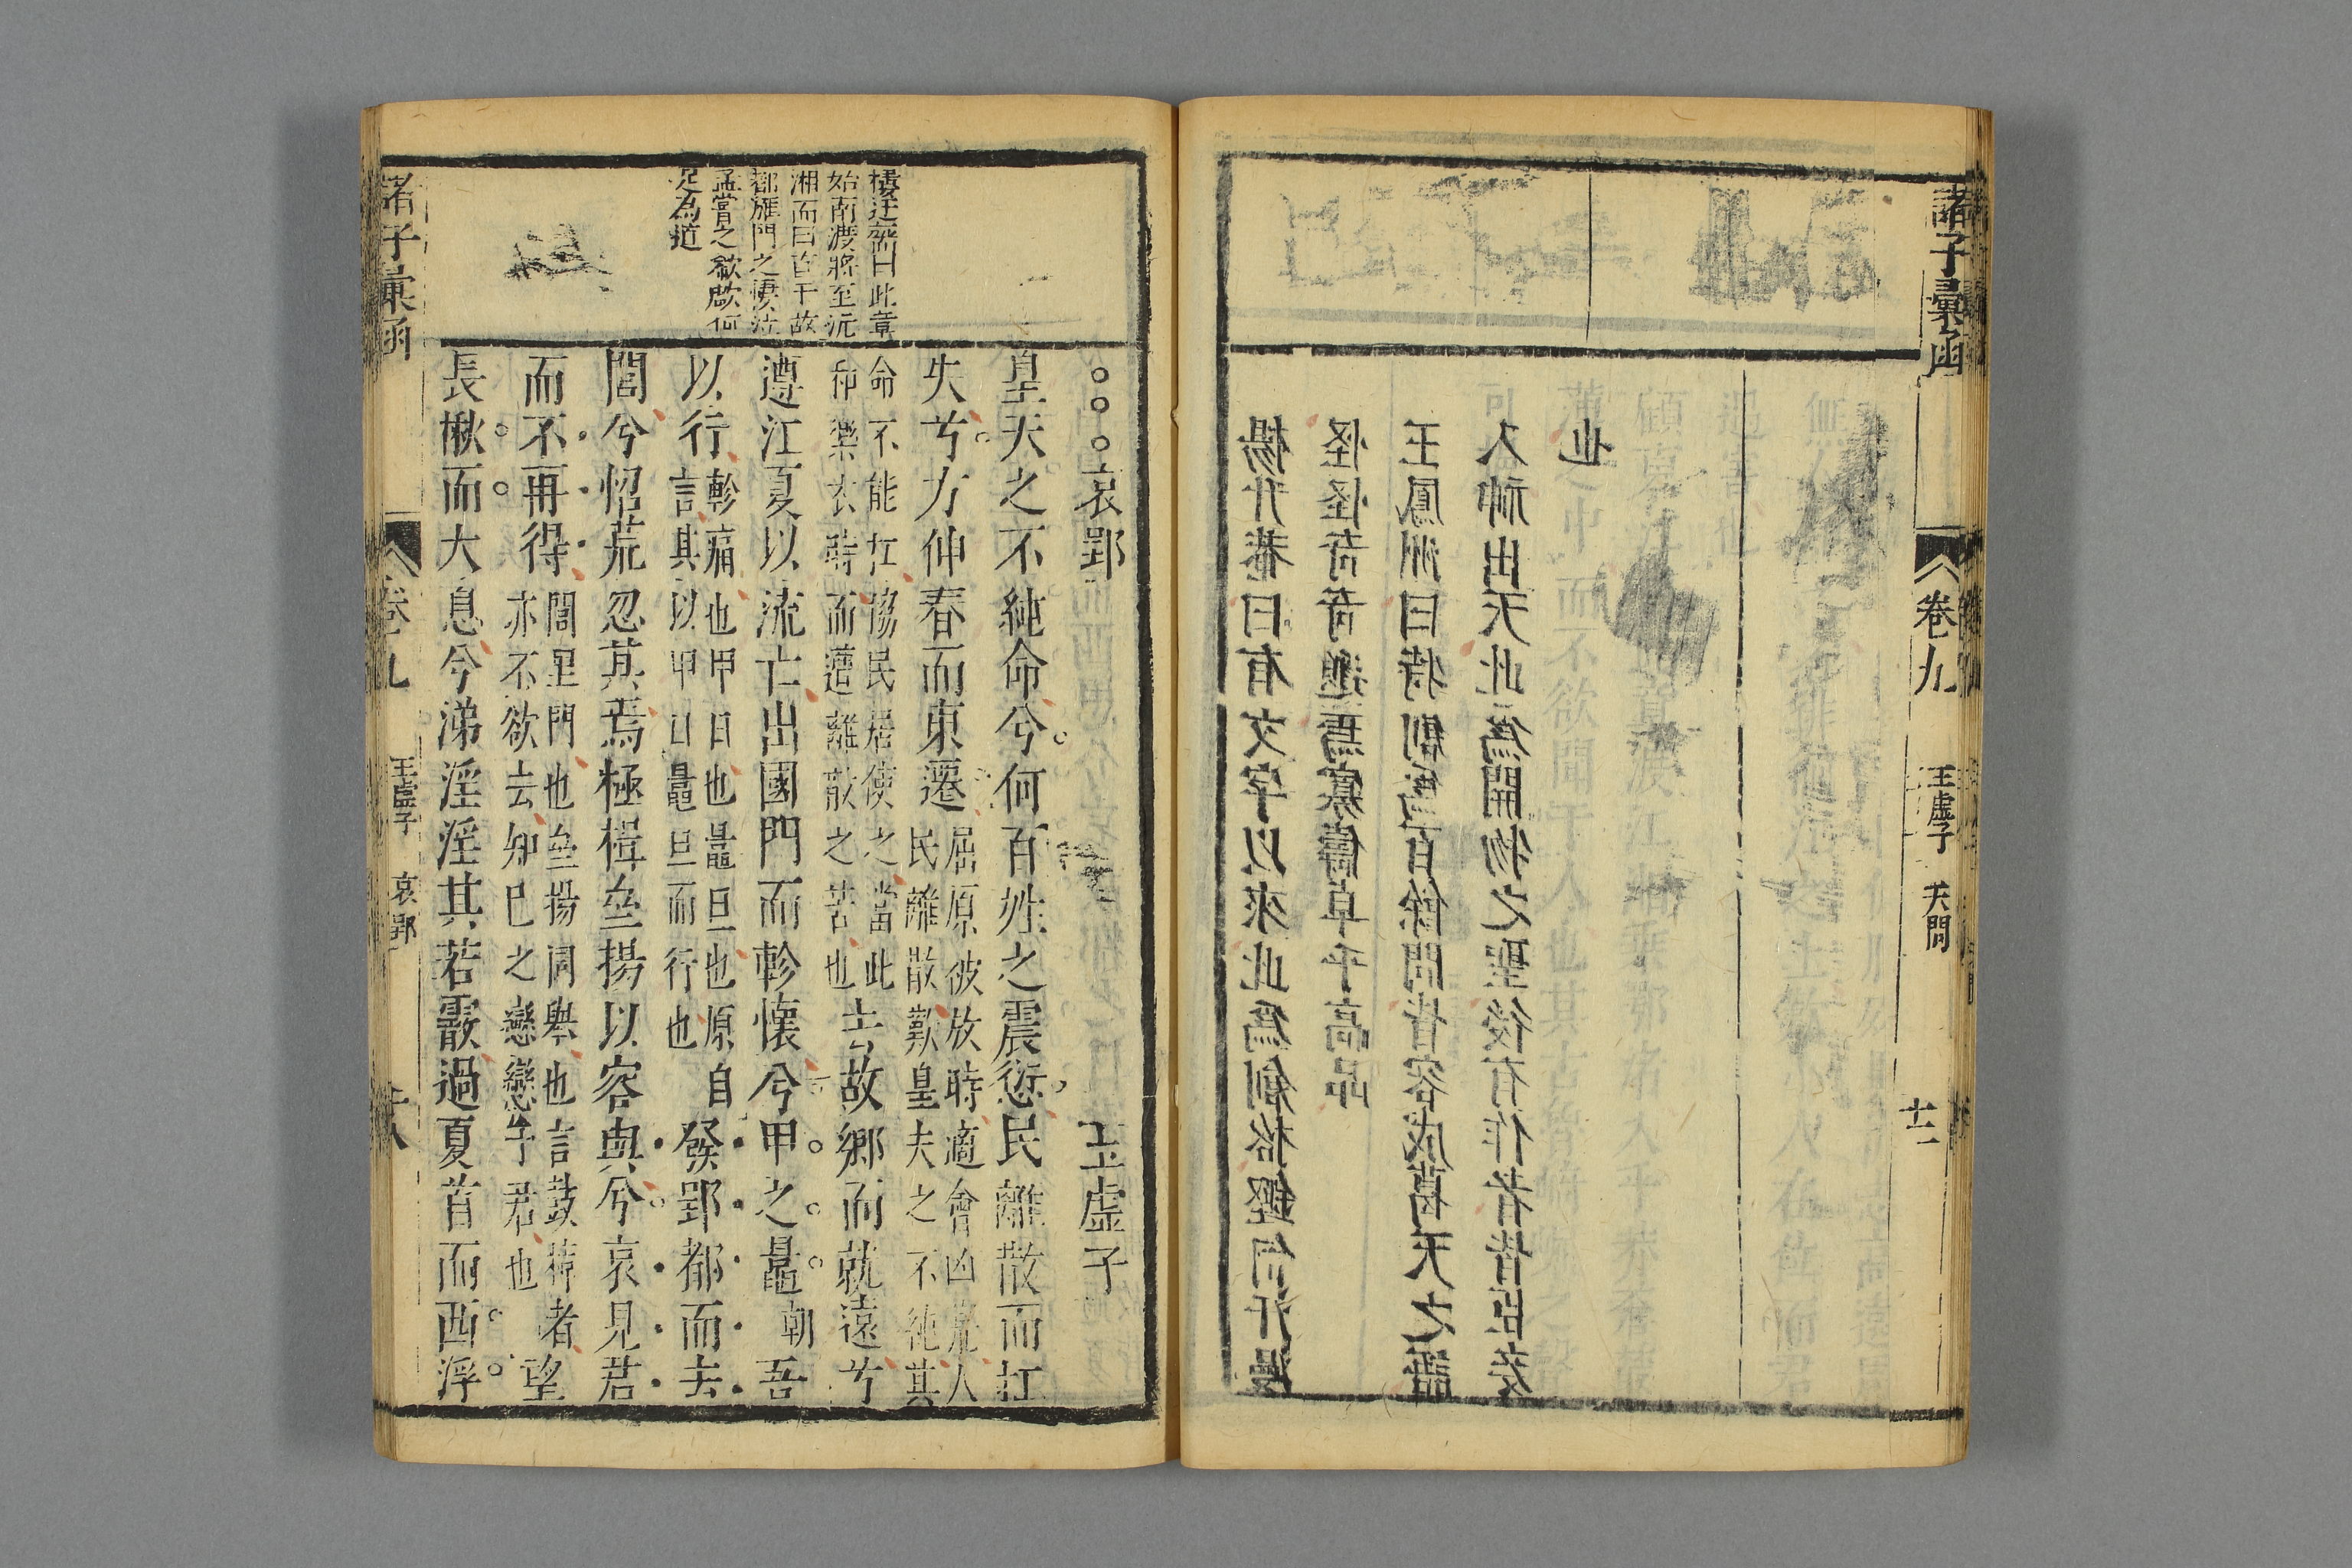 諸子彙函 卷九 玉虛子 天問
楊升菴曰有文字以來此為創格鏗訇汗漫
怪怪奇奇邈焉寡儔卓乎高品
王鳳洲曰特創為百餘問皆容成葛天之語
入神出天此為開物之聖後有作者皆臣妾
也
樓迂齋曰此章
始南渡將至沅
湘而曰百千故
都雁門之悽泣
孟嘗之欷歔何
足為道
哀郢 玉虛子
皇天之不純命兮何百姓之震愆民離散而相
失兮方仲春而東遷屈原彼放時適會凶荒人
民離散歎皇夫之不純其
命不能相協民居使之當此
仲樂衣時而遭離散之苦也去故鄉而就遠兮
遵江夏以流亡出國門而軫懷兮甲之鼂朝吾
以行軫痛也甲日也鼂旦也原自
言其以甲日鼂旦而行也發郢都而去
閭兮怊荒忽其焉極楫垒揚以容與兮哀見君
而不再得閭里門也垒揚同舉也言鼓棹者
亦不欲去知已之戀戀于君也望
長楸而大息兮涕淫淫其若霰過夏首而西浮
諸子彙函 卷九 玉虛子 哀郢